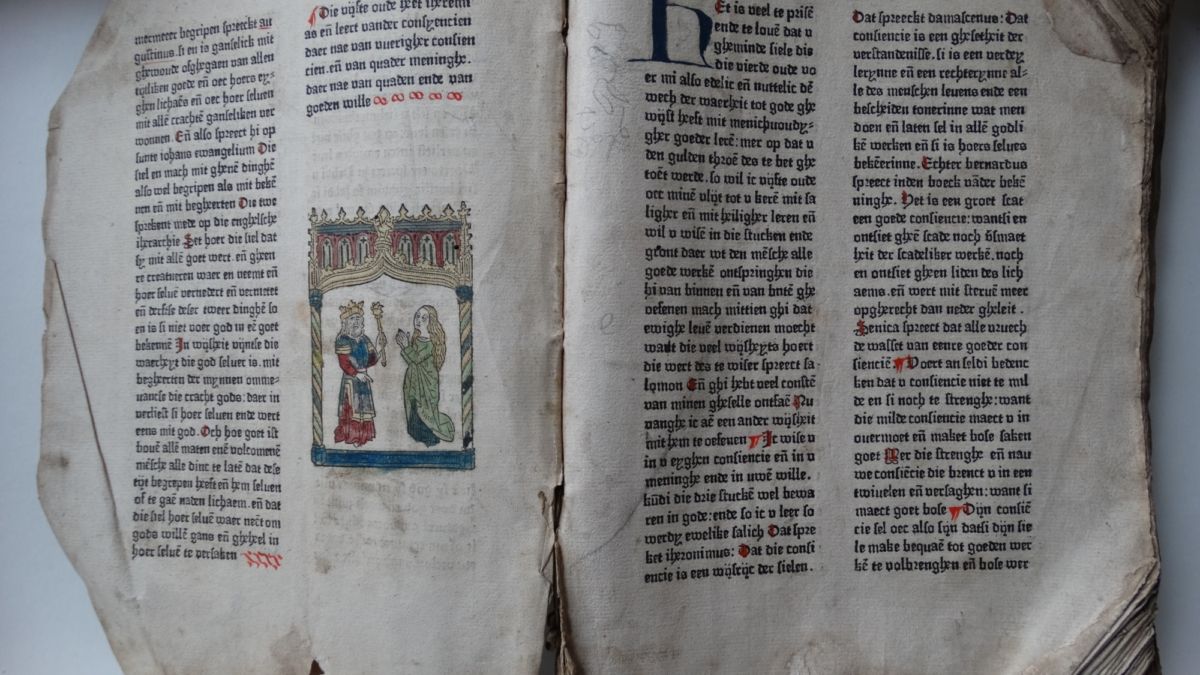 mermeer begripen spreeckt au
gustinus. si en is ganselick mit
ghewoude ofghegaen van allen
tijtliken goede eñ oec hoers ey⸗
ghen lichaēs eñ oec hoer seluen
mit allē crachtē ganseliken ver
wonnen. Eñ also spreect hi op
sunte iohans ewangelium Die
siel en mach mit ghenē dinghē
also wel begripen als mit bekē
nen eñ mit begherten Die twe
sprekent mede op die enghelsche
iherarchie Set hoer die siel dat
sy mit allē goet wert. eñ gheen
re creatueren waer en neemt eñ
hoer seluē vernedert eñ vermetet
eñ derfste deser tweer dinghē so
en is si niet voer god in eē goet
bekennē In wijsheit vijntse die
waerheyt die god seluer is. mit
begheerten der mynnen omme⸗
vanctse die cracht gods: daer in
verliest si hoer seluen ende wert
eens mit god. Och hoe goet ist
bouē allē maten enē volcomenē
mēsche alle dinc te latē dat dese
tijt begrepen heeft eñ hem seluen
of te gaē naden lichaem. eñ dat
die siel hoer seluē waer nect om
gods willē gans eñ gheheel in
hoer seluē te versaken
Die vijfte oude heet iheremi
as eñ leert vander consyencien
daer nae van vuerigher consien
cien. eñ van quader meninghe.
daer nae van quaden ende van
goeden wille
Het is veel te prisē
ende te louē dat v
gheminde siele die
die vierde oude vo
er mi also edelic eñ nuttelic dē
wech der waerheit tot gode ghe
wijst heeft mit menichuoudy⸗
gher goeder lerē: mer op dat v
den gulden throē des te bet ghe
toēt werde. so wil ic vijfte oude
oec minē vlijt tot v kerē mit sa
ligher eñ mit heiligher leren eñ
wil v wisē in die stucken ende
gront daer wt den mēsche alle
goede werkē ontspringhen die
hi van binnen eñ van butē ghe
oefenen mach mittien ghi dat
ewighe leuē verdienen moecht
want die veel wijsheyts hoert
die wert des te wiser spreect sa⸗
lomon Eñ ghi hebt veel constē
van minen gheselle ontfaē Nu
vanghe ic aē een ander wijsheit
mit hem te oefenen Ic wise v
in v eyghen consiencie eñ in v
meninghe ende in uwē wille.
kūdi die drie stuckē wel bewa
ren in gode: ende so ic v leer so
werdy ewelike salich Dat spre
ket iheronimus: Dat die consi
encie is een wijsrijc der sielen.
Dat spreeckt damascenus: Dat
consiencie is een ghesetheit der
verstandenisse. si is een verdey
lerynne eñ een rechterynne al⸗
le des menschen leuens ende een
bescheiden tonerinne wat men
doen eñ laten sel in allē godli
kē werken eñ si is hoers selues
bekēerinne. Echter bernardus
spreect inden boeck vāder bekē
ninghe. Het is een groet scat
een goede consiencie: wantsi en
ontsiet ghēē scade noch v̄smaet
heit der scadeliker werkē. noch
en ontsiet gheen liden des lich
aems. eñ wert mit steruē meer
opgherecht dan neder gheleit.
Senica spreect dat alle vruech
de wasset van eenre goeder con
siencie. Voert an seldi bedenc
ken dat v consiencie niet te mil
de en si noch te strenghe: want
die milde consiencie maect v in
ouermoet eñ maket bose saken
goet Mer die strenghe eñ nau
we consiēcie die brenct v in een
twiuelen eñ versaghen: want si
maect goet bose Dijn consiē
cie sel oec also sijn datsi dijn sie
le make bequaē tot goeden wer
kē te volbrenghen eñ bose wer